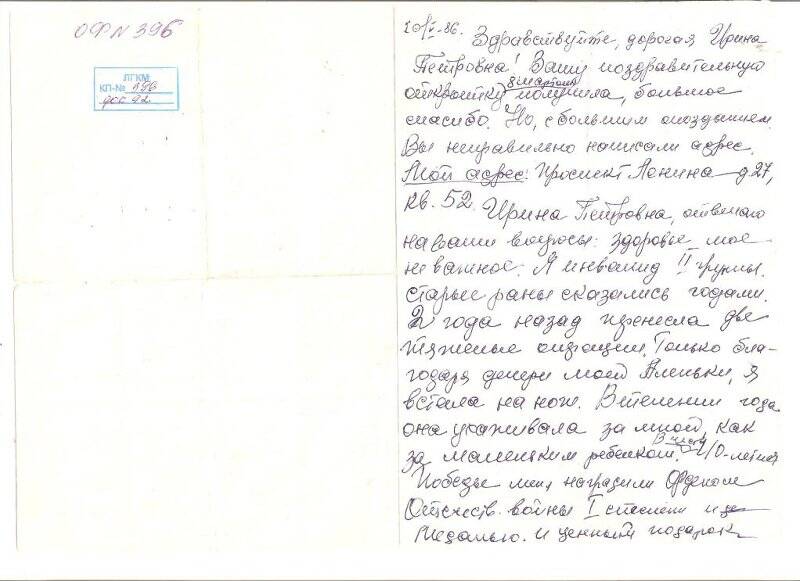 ОФ№ 396
ЛГКМ
КП-№ 196
дос 92
20/V-86. Здравствуйте, дорогая Ирина
Петровна! Вашу поздравительную
8 марта
открытку получила, большое
спасибо. Но, с большим опозданием.
Вы неправильно написали адрес.
Мой адрес: проспект Ленина д 27,
кв. 52. Ирина Петровна, отвечаю
на ваши вопросы: здоровье мое
не важное. Я инвалид II группы.
Старые раны сказались годами.
2 года назад перенесла две
тяжелые операции. Только бла-
годаря дочери моей Аленьки, я
встала на ноги. В течении года
она ухаживала за мной, как
В честь
за маленьким ребенком. 40-летия
Победы меня наградили Орденом
Отечеств. войны I степени и
медалью. и ценным подарком